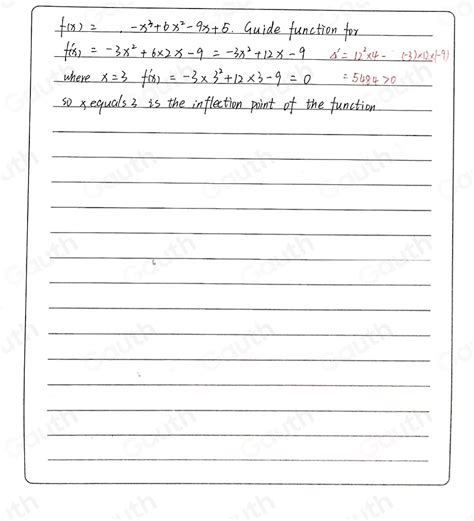 f(x) = -x³+6x²-9x+5. Guide function for
f'(x) = -3x²+6×2x-9 = -3x²+12x-9 Δ = 12²×4 - (-3)×12×(-9)
where x=3 f'(x) = -3×3²+12×3-9 = 0 = 5484 >0
so x equals 3 is the inflection point of the function